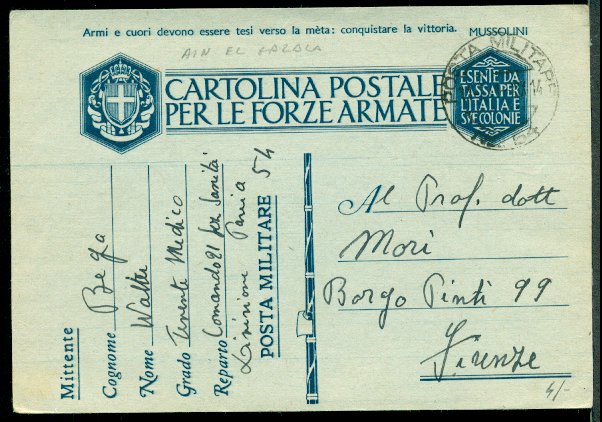 Armi e cuori devono essere tesi verso la mèta: conquistare la vittoria. MUSSOLINI
AIN EL GAZALA
CARTOLINA POSTALE
PER LE FORZE ARMATE
ESENTE DA
TASSA PER
L'ITALIA E
SVE COLONIE
POSTA MILITARE
14
Mittente
Cognome Bega
Nome Walter
Grado Tenente Medico
Reparto Comando 21 Sez Sanità
Divisione Pavia
POSTA MILITARE 54
Al Prof. dott
Mori
Borgo Pinti 99
Firenze
4/-